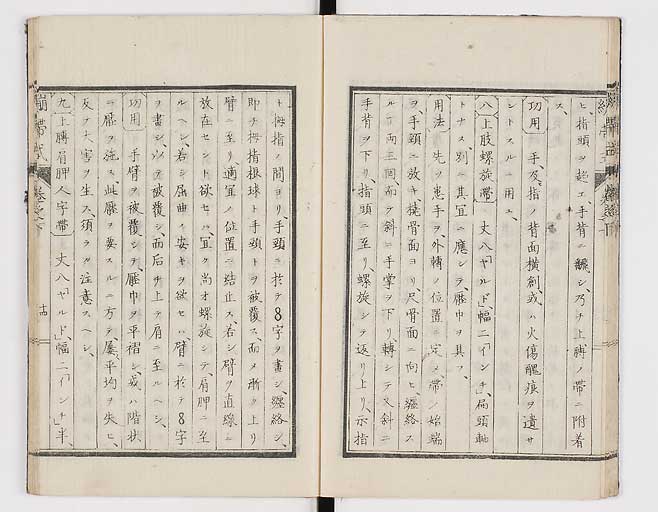 ヒ、指頭ヲ超エ、手背ニ飜シ、乃チ上膊ノ帯ニ附着
ス、
功用 手及ヒ指ノ背面横創、或ハ火傷醜痕ヲ遺サ
ントスルニ用ユ、
八上肢螺旋帯 丈八「ヤルド」、幅二「インチ」、扁頭軸
トナス、別ニ其宜ニ應シテ、壓巾ヲ具フ、
用法 先ツ患手ヲ外轉ノ位置ニ定メ、帯ノ始端
ヲ手頸ニ放キ、撓骨面ヨリ尺骨面ニ向ヒ纏絡ス
ルヿ両三回、而ヲ斜ニ手掌ヲ下リ、轉シテ又斜ニ
手背ヲ下リ、指頭ニ至リ、螺旋シテ返リ上リ、示指
ト拇指ノ間ヨリ、手頸ニ於テ8字ヲ畫シ、纏絡シ、
即チ拇指根球ト手頸トヲ被覆ス、而メ漸ク上リ
臂ニ至リ、適宜ノ位置ニ結止ス、若シ臂ヲ直線ニ
放在セント欲セハ、冝ク尚オ螺旋シテ、肩胛ニ至
ルヘシ、若シ屈曲ノ安キヲ欲セハ、臂ニ於テ8字
ヲ畫シ、以テ被覆シ、而后チ上テ肩ニ至ルヘシ、
功用 手臂ヲ被覆シ、壓巾ヲ平褶シ、或ハ階状
ニ壓ヲ施ス、此壓ヲ要スルニ方テ、屡平均ヲ失ヒ、
反テ大害ヲ生ス、須ラク注意スヘシ、
九上膊肩胛人字帯 丈八「ヤルド」、幅二「インチ」半、
繃帯式 巻之下
十四